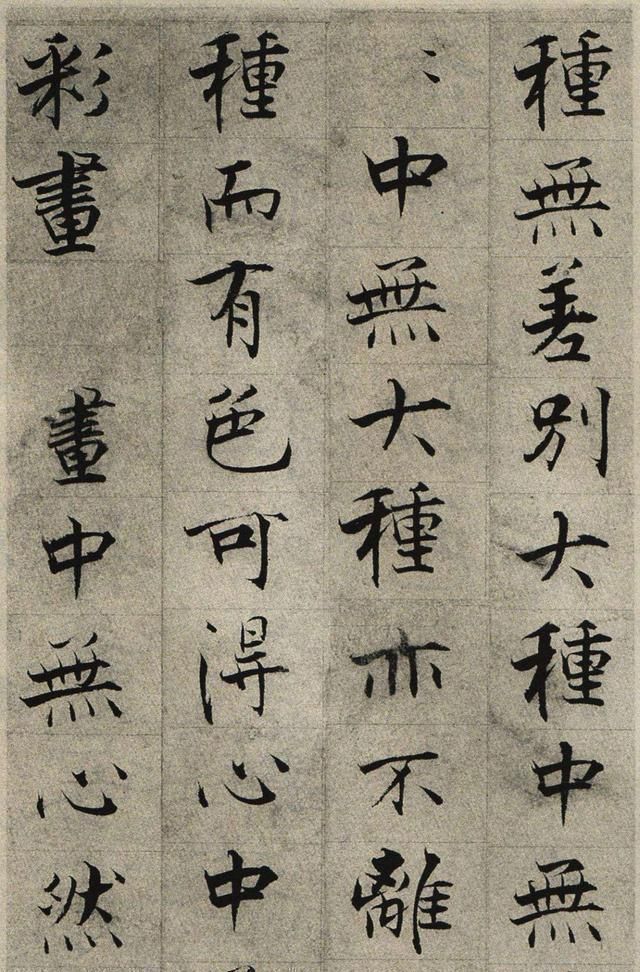 種無差別大種中無
〻中無大種亦不離
種而有色可得心中
彩畫 畫中無心然